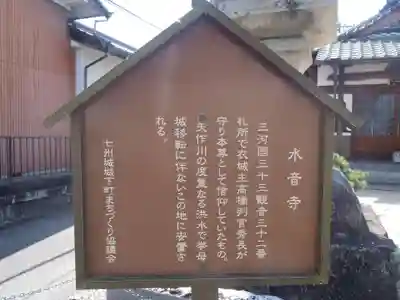 水音寺
三河国三十三観音三十二番
札所で衣城主高橋判官秀長が
守り本尊として信仰していたもの。
矢作川の度重なる洪水で挙母
城移転に伴ないこの地に安置さ
れる。
七州城城下町まちづくり協議会